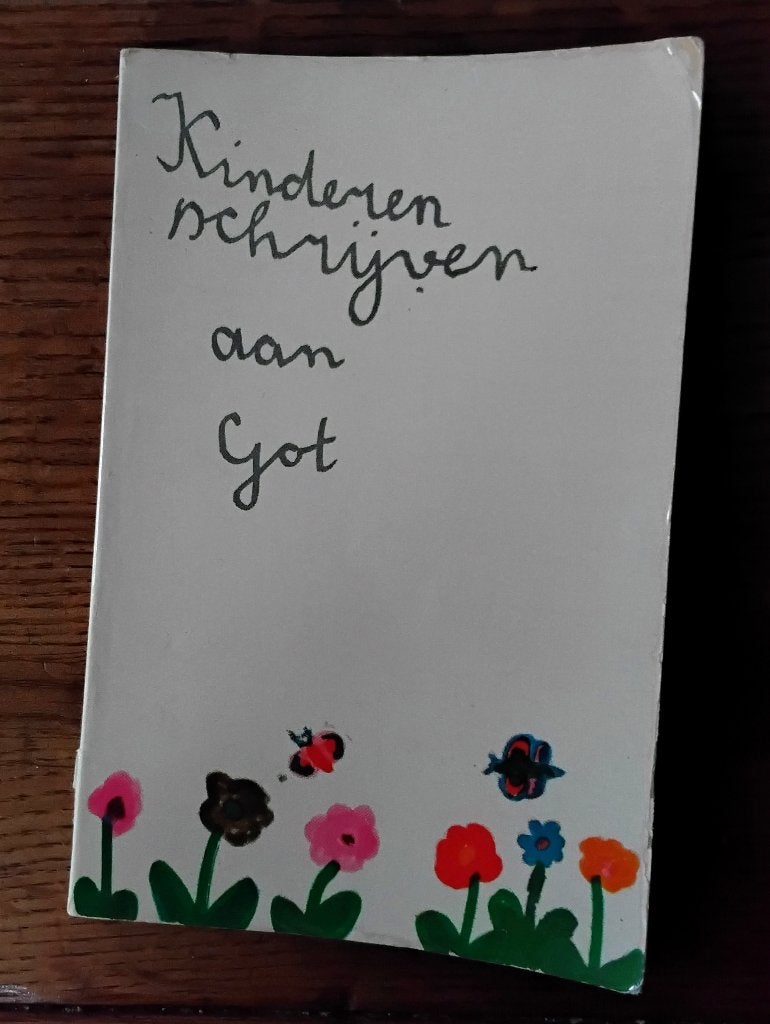 Kinderen
schrijven
aan
Got